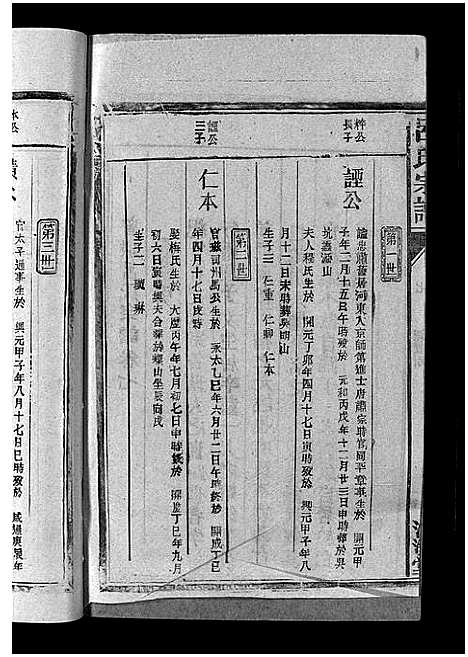 氏宗譜
梓公長子
第一世
諲公
諡忠肅舊居河東入京師第進士唐肅宗時官同平章事生於 開元甲
子年二月十五日午時歿於 元和丙戌年十一月廿三日申時葬於吳
坑蓋源山
夫人程氏生於 開元丁卯年四月十七日寅時歿於 興元甲子年八
月十二日未時葬吳明山
生子三 仁重 仁卿 仁本
諲公三子
第二世
仁本
官蘇河州馬公生於 永太乙巳年六月廿二日午時歿於 開成丁巳
年四月十七日戌時
娶梅氏生於 大歷丙午年七月初七日申時歿於 開成丁巳年九月
初六日寅時與夫合葬於 山坐辰向戌
生子二 琳
本公
第三世
官太子通事生於 興元甲子年八月十七日巳時歿於 咸通庚辰年